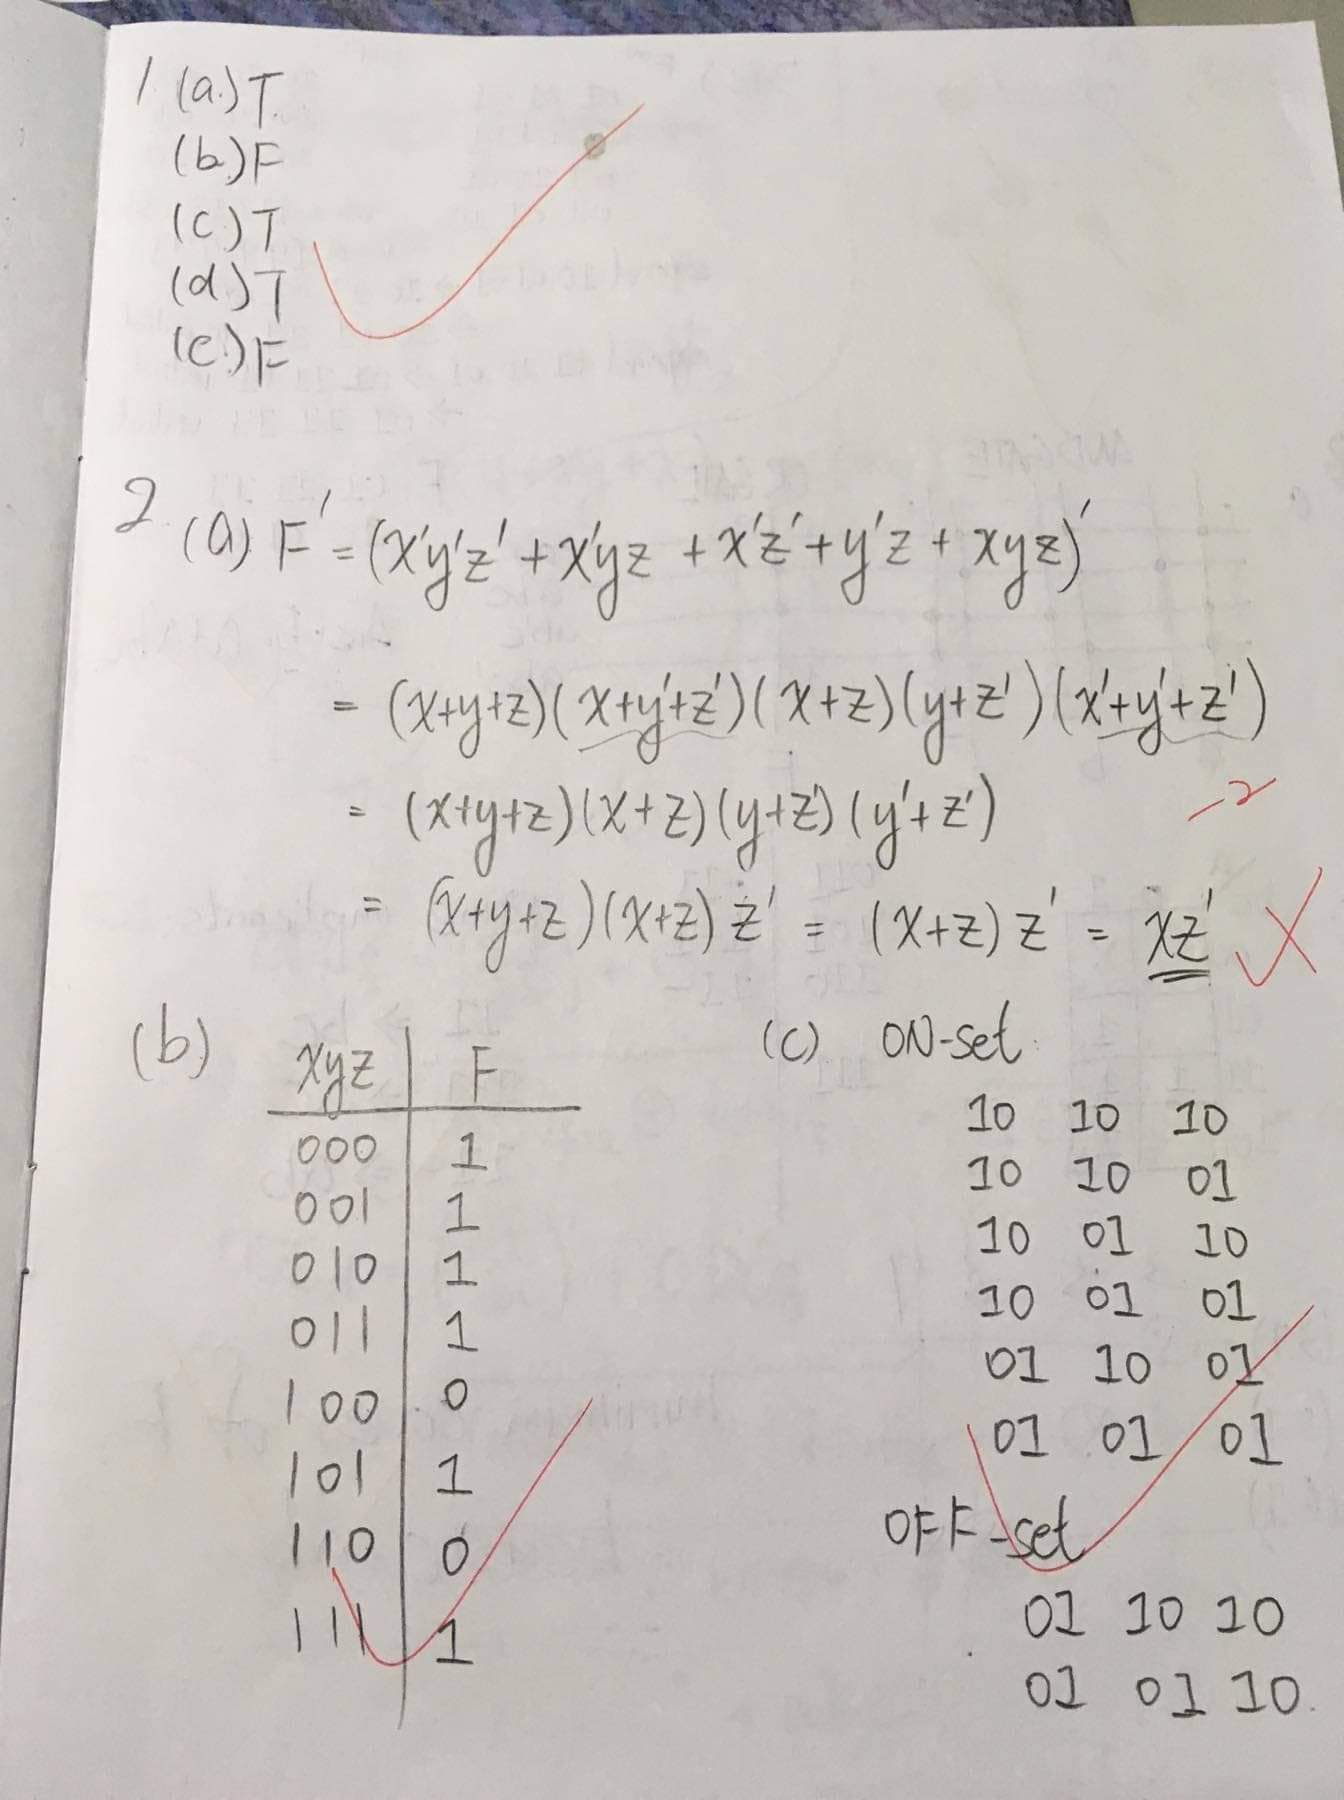 1 (a.) T
(b.) F
(c.) T
(d.) T
(e.) F
2. (a) F' = (x'y'z' + x'yz + x'z' + y'z + xyz)'
= (x+y+z)(x+y'+z')(x+z)(y+z')(x'+y'+z')
= (x+y+z)(x+z)(y+z')(y'+z')
-2
= (x+y+z)(x+z)z' = (x+z)z' = xz'
(b)
xyz F
000 1
001 1
010 1
011 1
100 0
101 1
110 0
111 1
(c) ON-set
10 10 10
10 10 01
10 01 10
10 01 01
01 10 01
01 01 01
OFF-set
01 10 10
01 01 10